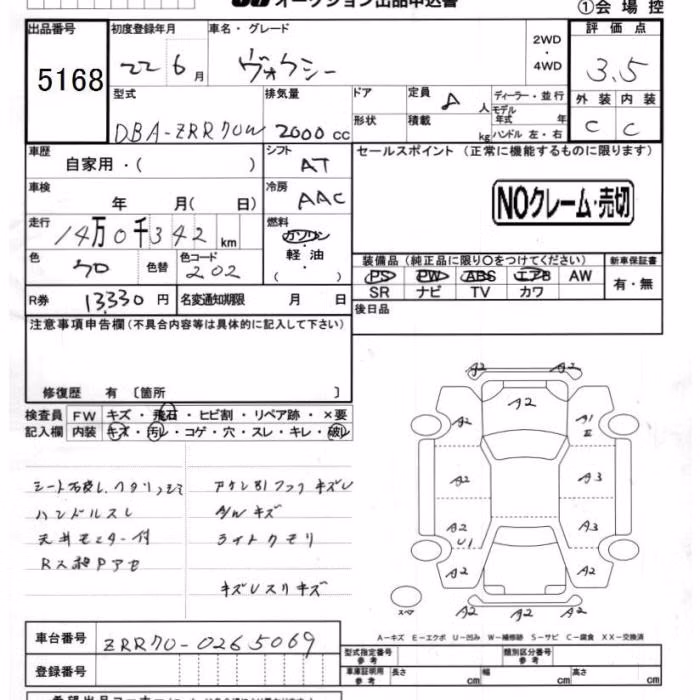 オークション出品申込書
①会場控
出品番号
5168
初度登録年月
22 6月
車名・グレード
ヴォクシー
2WD
・
4WD
評価点
3.5
外装 内装
C C
型式
DBA-ZRR70W
排気量
2000 cc
ドア
形状
定員 8 人
積載 kg
ディーラー・並行
モデル年式 年
ハンドル 左・右
車歴
自家用・( )
シフト
AT
車検
年 月( 日)
冷房
AAC
走行
14万0千342 km
燃料
ガソリン
・
軽油
( )
色
クロ
色替
色コード
202
R券
13,330 円
名変通知期限 月 日
セールスポイント (正常に機能するものに限ります)
NOクレーム・売切
装備品 (純正品に限り○をつけてください)
PS PW ABS エアB AW
SR ナビ TV カワ
新車保証書
有・無
後日品
注意事項申告欄(不具合内容等は具体的に記入して下さい)
修復歴 有 〔箇所 〕
検査員記入欄
FW キズ・飛石・ヒビ割・リペア跡・×要
内装 キズ・汚レ・コゲ・穴・スレ・キレ・破レ
ハンドルスレ
天井モニター付
A/Wキズ
ライトクモリ
A2 A2
A2
A2 A1
E
A2 A3
A2 A3
U1
A2 A2
A2 A2 A2
スペア
A-キズ E-エクボ U-凹み W-補修跡 S-サビ C-腐食 XX-交換済
車台番号
ZRR70-0265069
登録番号
型式指定番号
参考
類別区分番号
参考
車庫証明用
参考
長さ cm 幅 cm 高さ cm